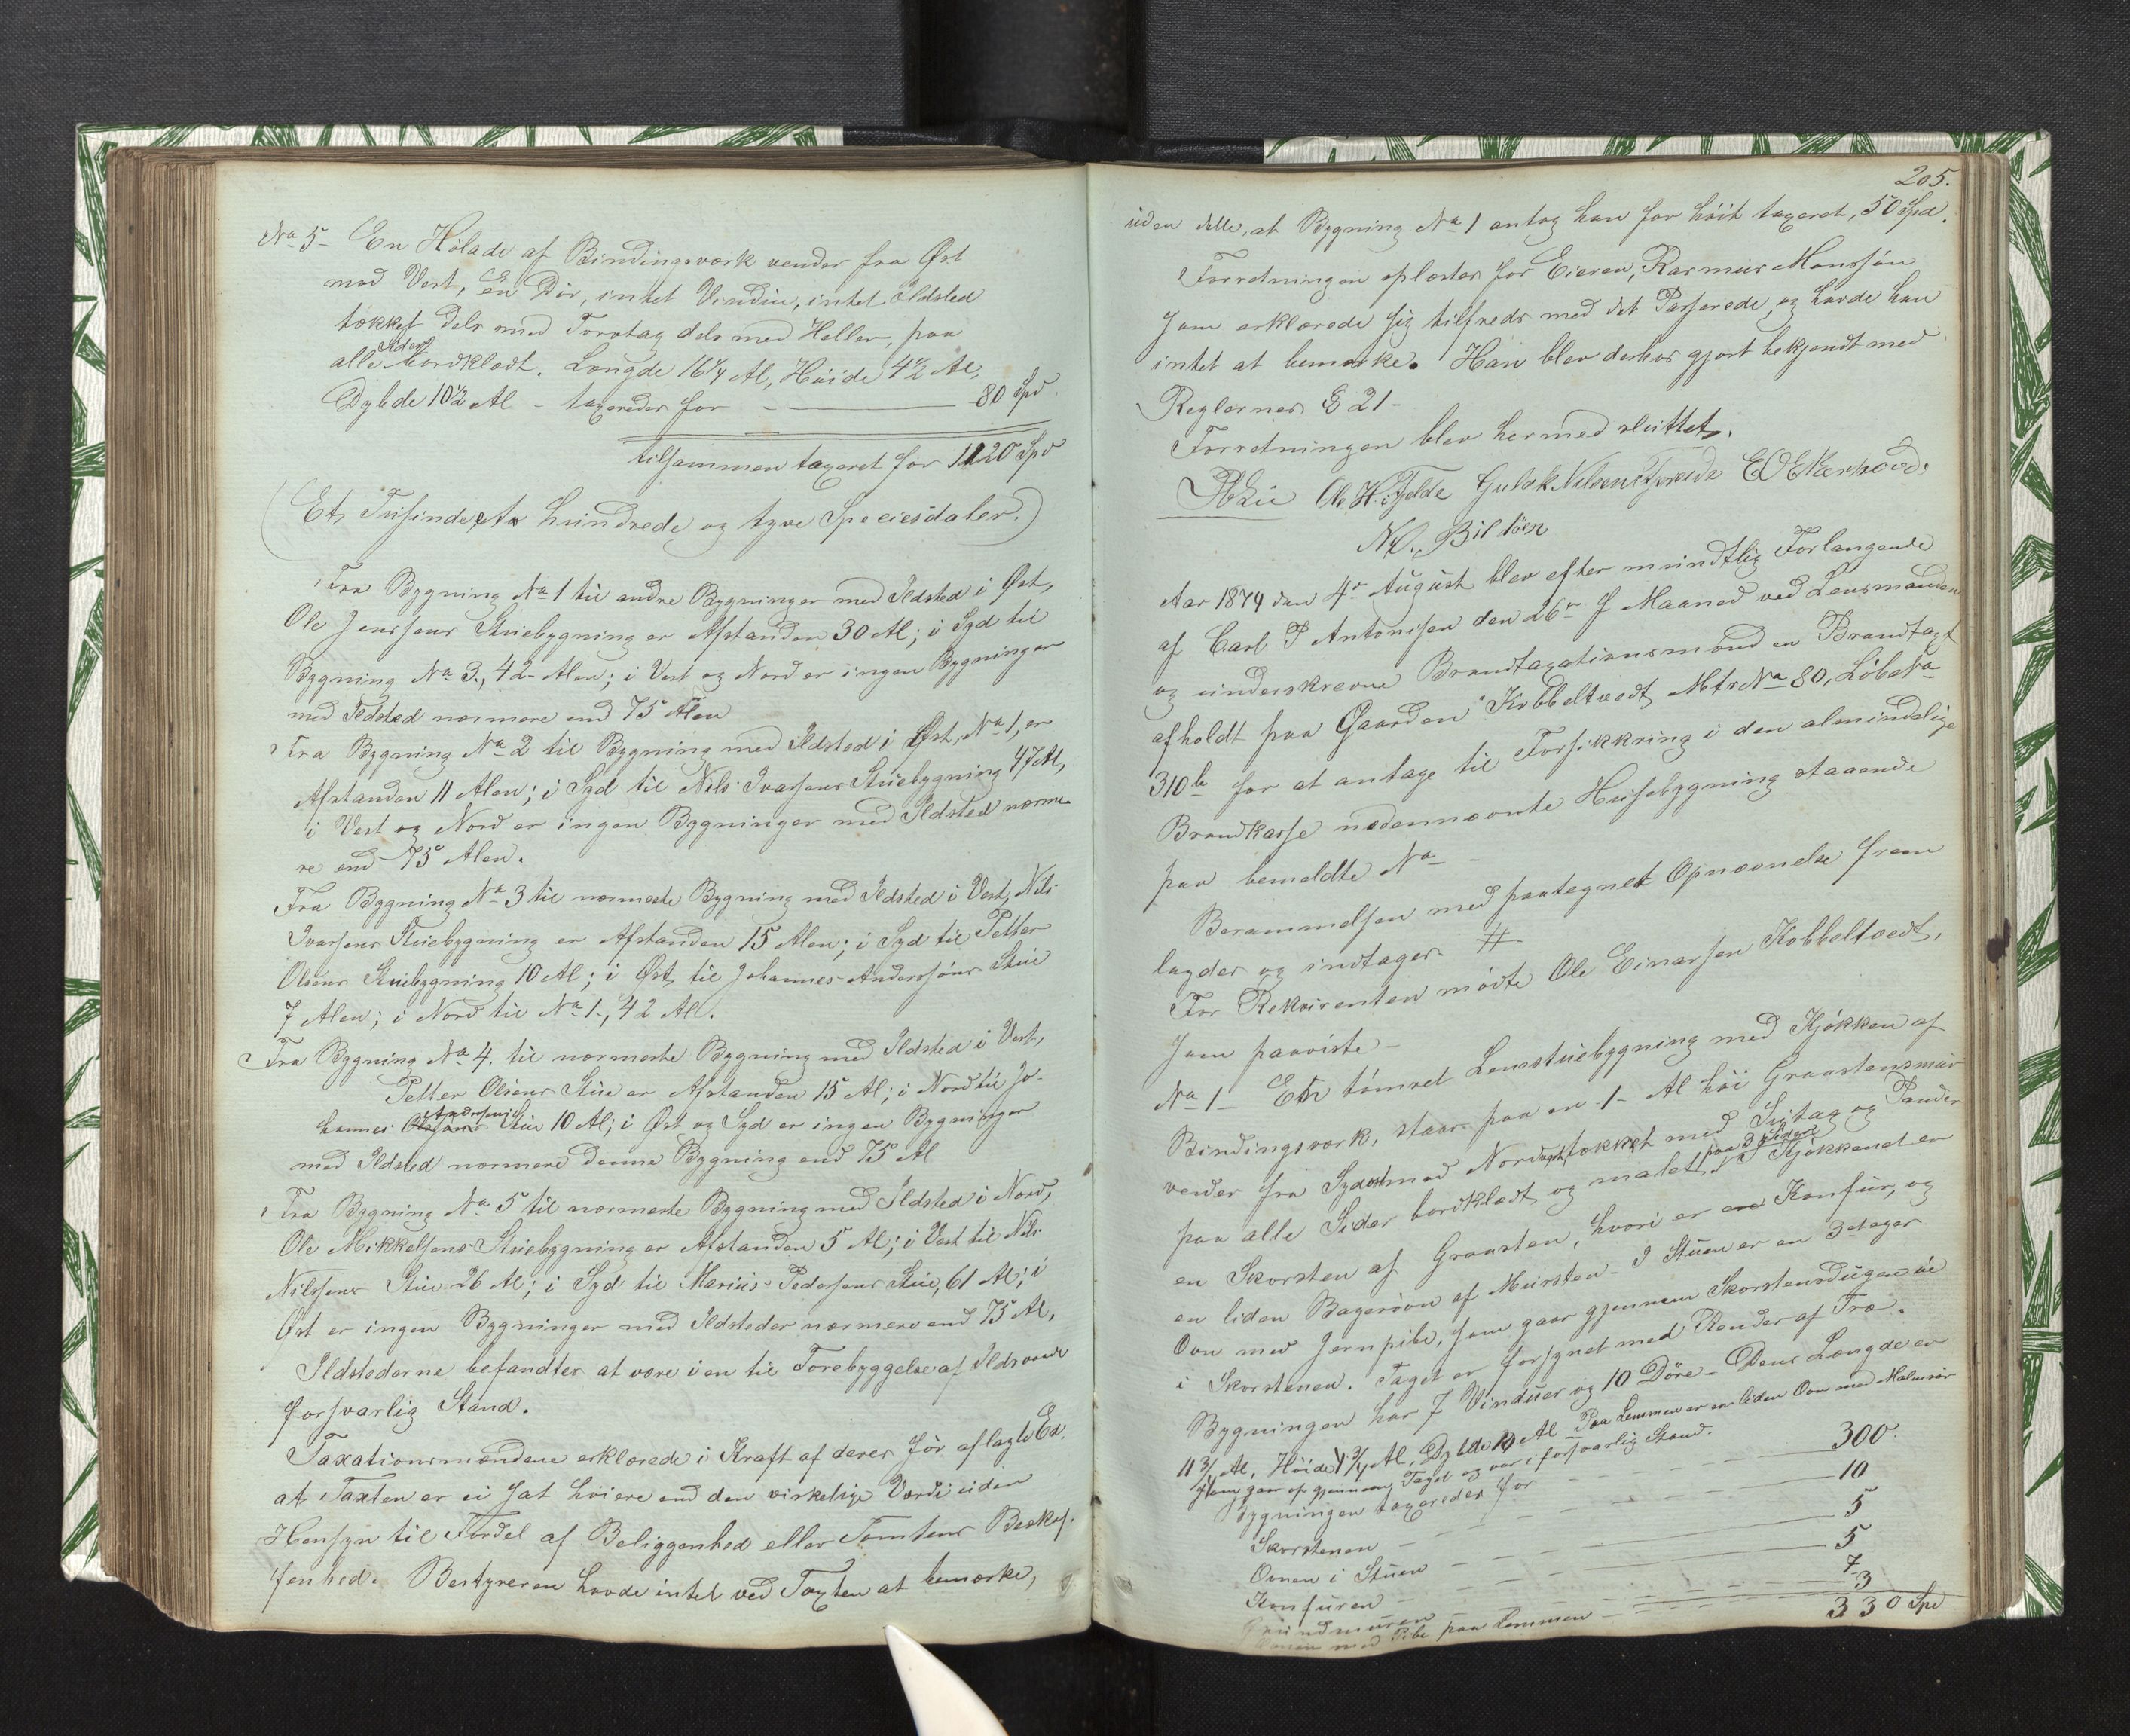 No 5- En Hølade af Bindingsværk vender fra Øst
mod Vest, en Dør, intet Vindu, intet Ildsted
tækket dels med Torvtag dels med Heller, paa
alle Sider bordklædt. Længde 16 1/4 Al, Høide 4 1/2 Al,
Dybde 10 1/2 Al - taxeredes for - 80 Spd.
tilsammen taxeret for 1120 Spd
(Et Tusinde et hundrede og tyve Speciesdaler.)
Fra Bygning No 1 til andre Bygninger med Ildsted i Øst,
Ole Jensens Stuebygning er Afstanden 30 Al; i Syd til
Bygning No 3, 42 Alen; i Vest og Nord er ingen Bygninger
med Ildsted nærmere end 75 Alen
Fra Bygning No 2 til Bygning med Ildsted i Øst, No 1, er
Afstanden 11 Alen; i Syd til Nils Ivarsens Stuebygning 47 Al,
i Vest og Nord er ingen Bygninger med Ildsted nærme-
re end 75 Alen.
Fra Bygning No 3 til nærmeste Bygning med Ildsted i Vest, Nils
Ivarsens Stuebygning er Afstanden 15 Alen; i Syd til Petter
Olsens Stuebygning 10 Al; i Øst til Johannes Anderssöns Stue
7 Alen; i Nord til No 1, 42 Al.
Fra Bygning No 4. til nærmeste Bygning med Ildsted i Vest,
Petter Olsens Stue er Afstanden 15 Al; i Nord til Jo-
hannes Andersens Stue 10 Al; i Øst og Syd er ingen Bygninger
med Ildsted nærmere denne Bygning end 75 Al
Fra Bygning No 5 til nærmeste Bygning med Ildsted i Nord,
Ole Mikkelsens Stuebygning er Afstanden 5 Al; i Vest til Nils
Nilssens Stue 26 Al; i Syd til Marius Pedersens Stue, 61 Al; i
Øst er ingen Bygninger med Ildsteder nærmere end 75 Al.
Ildstederne befandtes at være i en til Forebyggelse af Ildsvaade
forsvarlig Stand.
Taxationsmændene erklærede i Kraft af deres før aflagte Ed.
at Taxten er ei sat høiere end den virkelige Værdi uden
Hensyn til Fordel af Beliggenhed eller Tomtens Beskaf-
fenhed. Bestyreren havde intet ved Taxten at bemærke,
205.
uden dette, at Bygning No 1 antog han for høit taxeret, 50 Spd.
Forretningen oplæstes for Eieren, Rasmus Monssön
som erklærede sig tilfreds med det Passerede, og havde han
intet at bemærke. Han blev derhos gjort bekjendt med
Reglernes § 21-
Forretningen blev hermed sluttet.
Ole H. Fjelde Gulak Nilsen
N. O. Bildöen
Aar 1874 den 4de August blev efter mundtlig Forlangende
af Carl P Antonisen den 26de f Maaned ved Lensmanden
og underskrevne Brandtaxationsmænd en Brandtaxt
afholdt paa Gaarden Kobbeltvedt Mtr No 80, Løbe No
310b for at antage til Forsikkring i den almindelige
Brandkasse nedennævnte Husebygning staaende
paa bemeldte No -
Berammelsen med paategnet Opnævnelse frem
lagdes og indtages #
For Rekvirenten mødte Ole Einarsen Kobbeltvedt,
som paaviste-
No 1- En tømret Lemstuebygning med Kjøkken af
Bindingsværk, staar paa en 1- Al høi Graastensmur
vender fra Sydost mod Nordvest, tækket med Sutag og Pander
paa alle Sider bordklædt og malet paa 3 Sider. I Kjøkkenet er
en Skorsten af Graasten, hvori er en Komfur, og
en liden Bagerovn af Mursten - I Stuen er en 3 etages
Ovn med Jernpibe, som gaar gjennem Skorstensdugen ud
i Skorstenen. Taget er forsynet med Render af Træ.
Bygningen har 7 Vinduer og 10 Døre - Dens Længde er
11 3/4 Al, Høide 3/4 Al, Dybde 10 Al - Paa Lemmen er en liden Ovn med Malmrør
som gaar op gjennem Taget og var i forsvarlig Stand.
Bygningen taxeredes for - 300.
Skorstenen - 10
Ovnen i Stuen - 5
Komfuren - 5
Grundmuren - 7
Ovnen med Pibe paa Lemmen - 3
330 Spd